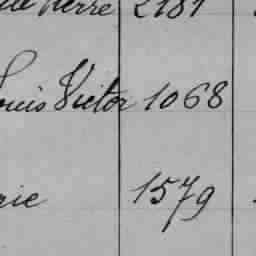 Pierre 2181
Louis Victor 1068
rie 1579